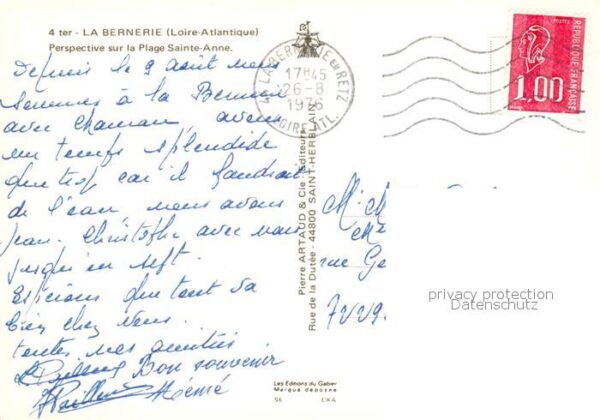 4 ter - LA BERNERIE (Loire-Atlantique)
Perspective sur la Plage Sainte-Anne.
Depuis le 9 août nous
sommes à la Bernerie
avec Maman, avons
un temps splendide
que trop car il faudrait
de l'eau, nous avons
Jean. Christophe avec nous
jusqu'en sept.
Espérons que tout va
bien chez vous.
toutes nos amitiés
Bon souvenir
LA BERNERIE EN RETZ
17H45
26-8
1976
LOIRE-ATL.
REPUBLIQUE FRANÇAISE
POSTES
1,00
Pierre ARTAUD & Cie / Editeurs
Rue de la Dutée - 44800 SAINT-HERBLAIN
rue Ge
privacy protection
Datenschutz
Les Editions du Gabier
Marque déposée